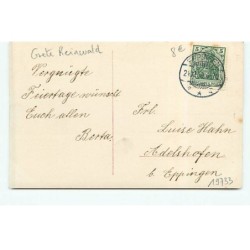 Grete Reinwald
8€
Vergnügte
Feiertage wünscht
Euch allen
Berta.
Frl.
Luise Hahn
Adelshofen
b. Eppingen
19755